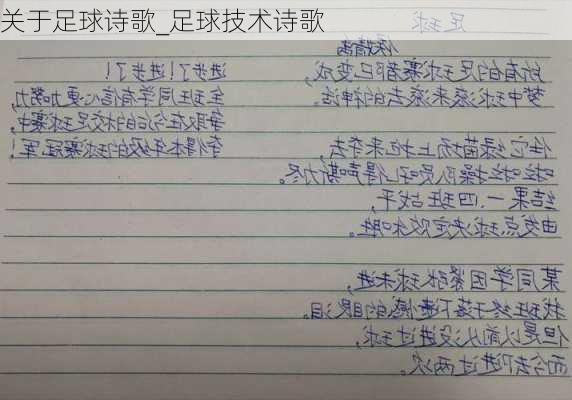 关于足球诗歌_足球技术诗歌
足球
所有的足球赛都已变成,
梦中球滚来滚去的神话。
任它绿茵场上抢来夺去,
啦啦操队员吼得声嘶力尽。
结果一.四班战平,
由发点球决定败和胜。
某同学因紧张球未进,
我班终于落下遗憾的眼泪。
但是以前从没进过球,
而今却进过两次。
进步了!进步了!
全班同学有信心更加努力,
争取在今后的校足球赛中,
夺得本年级的球赛冠军!